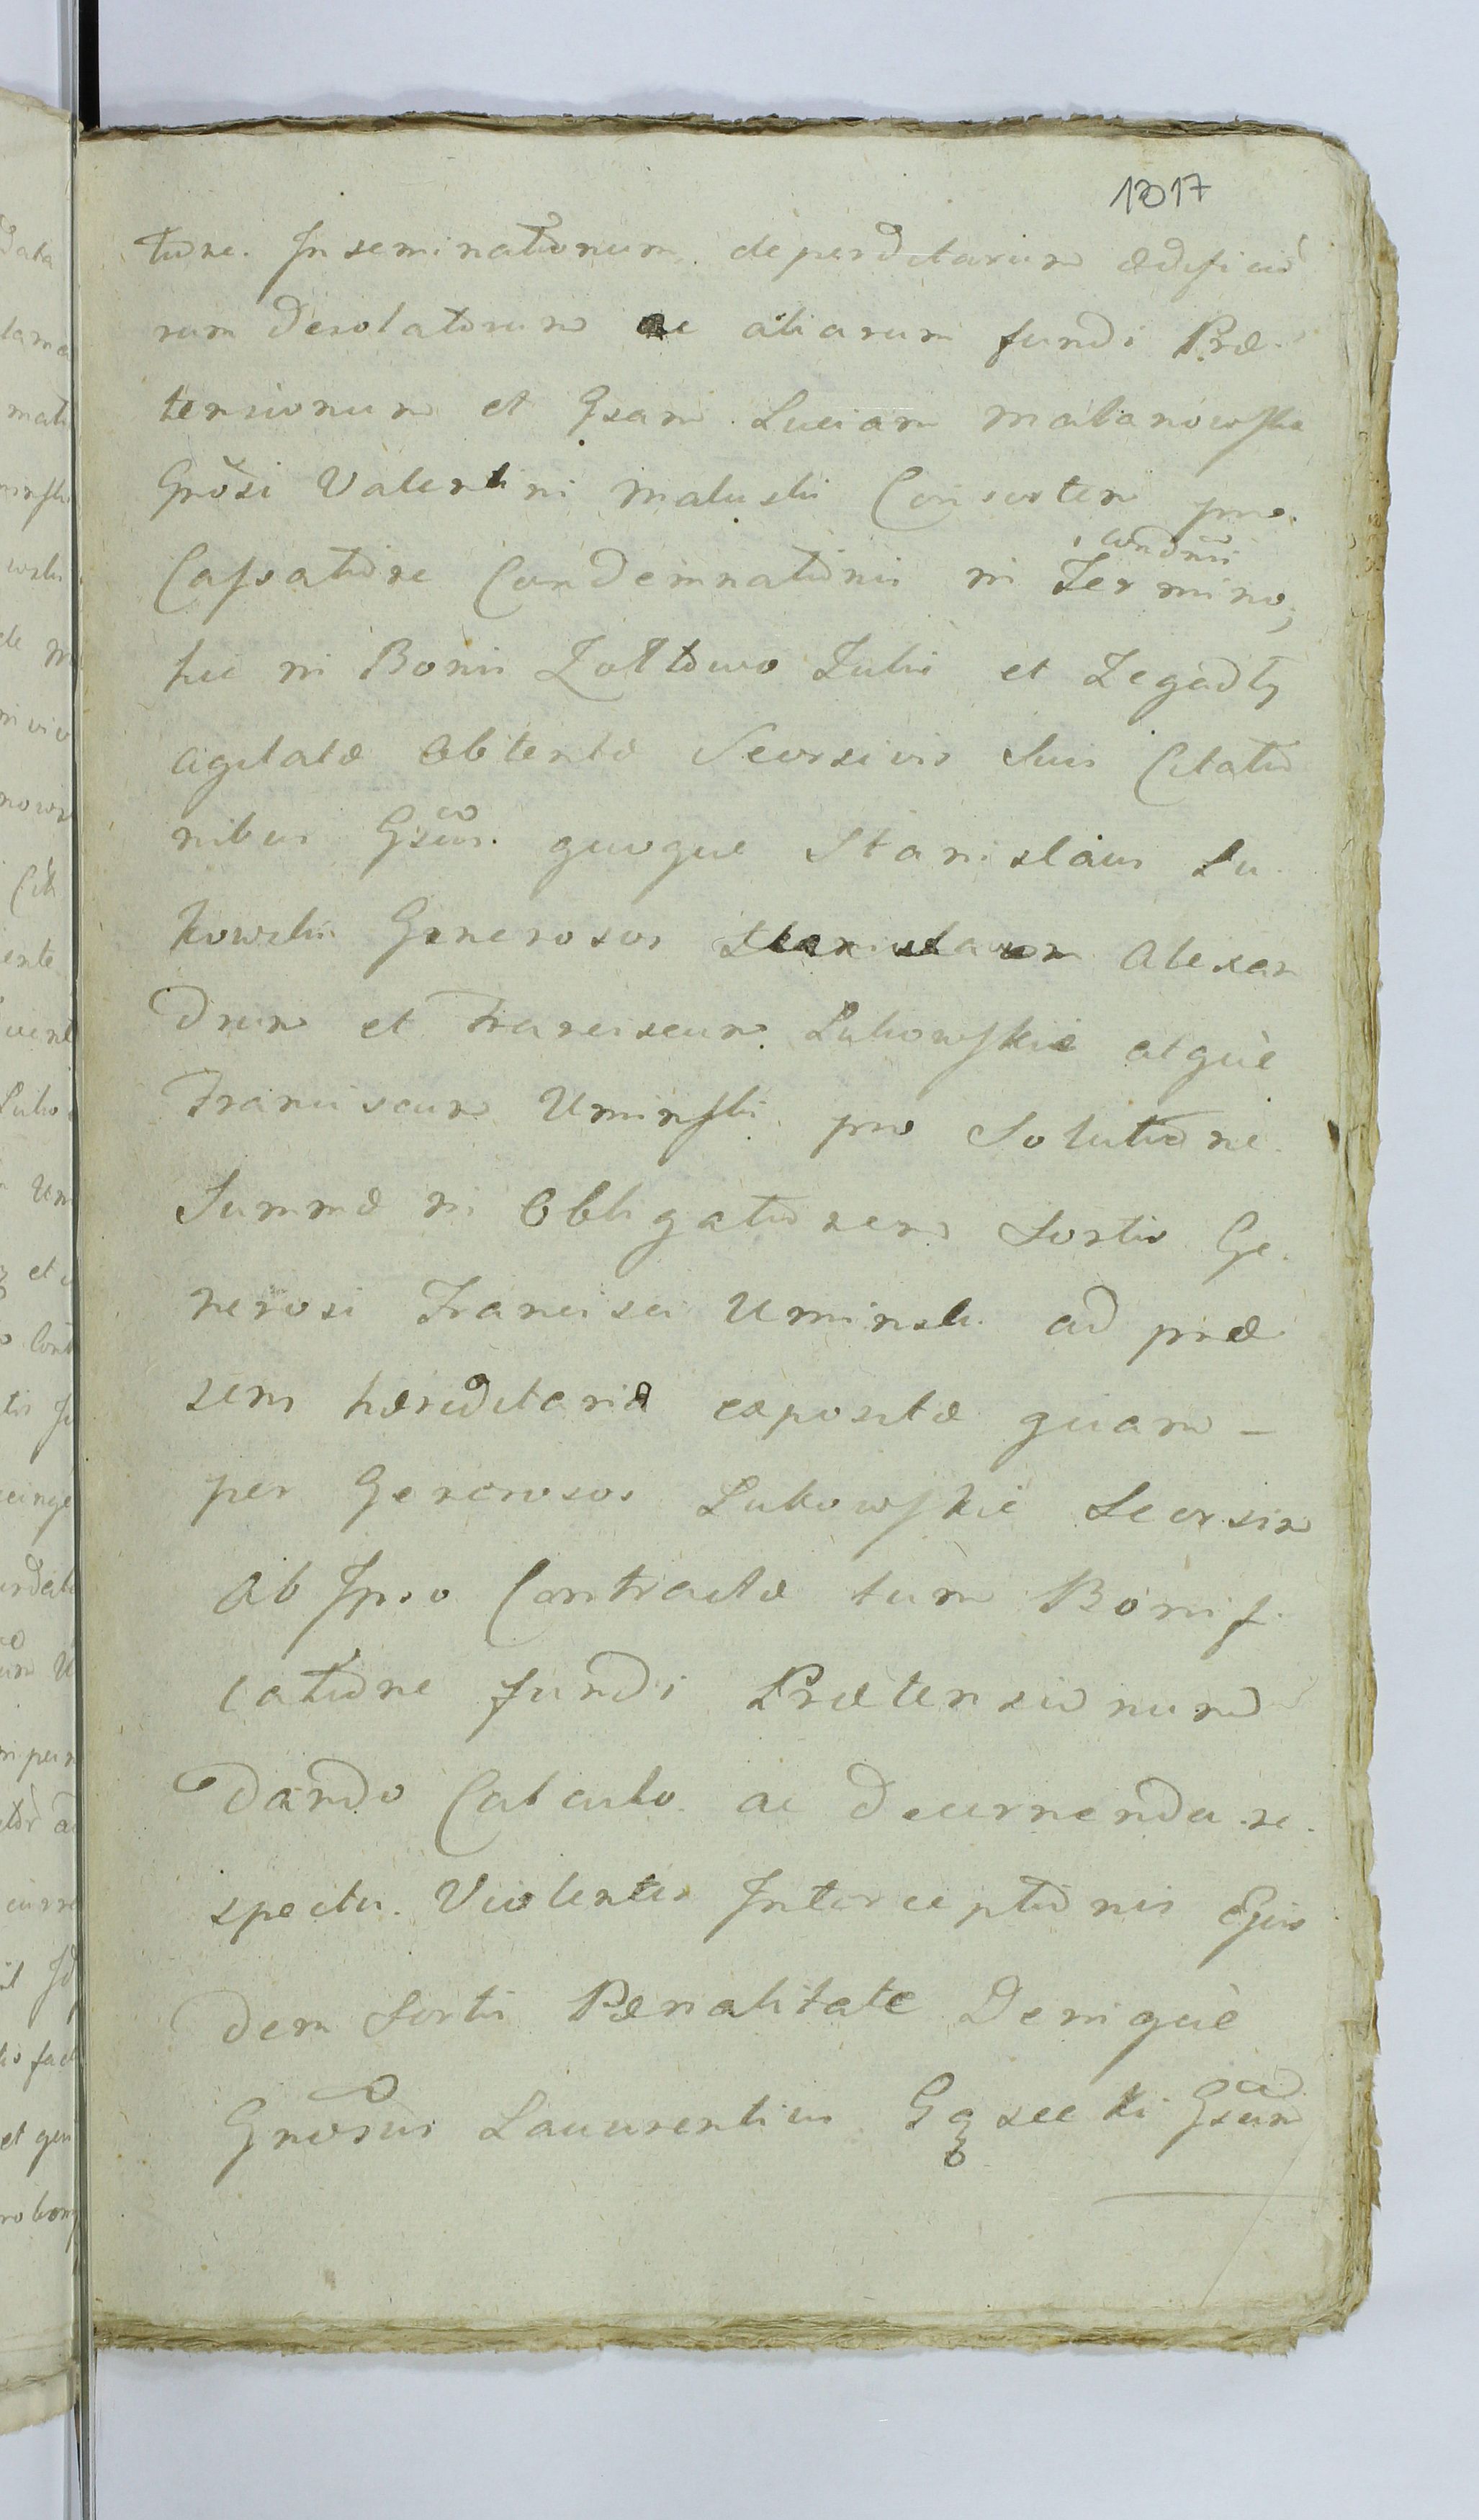 1017
tione. Inseminationum deperditarum ædificio
rum Desolatorum ac aliarum fundi Præ-
tensionum et Gsam Luciam Malanowska
Gnosi Valentini Maluski Consortem pro
Cassatione Condemnationis in Termino,
condnii
hic in Bonis Zoltowo Tulii et Zegadły
agitatæ obtentæ Seorsivis Suis Citatio
nibus Gsus quoque Stanislaus Lu
kowski Generosos Alexan
drum et Franciscum Lukowskie atquè
Franciscum Uminski pro Solutione
Summæ in Obligationem Sortis Ge-
nerosi Francisci Uminski ad præ
sens hæreditariæ expositæ quam -
per Generosos Lukowskie Seorsim
ab Ipso Contractæ tum Bonifi-
catione fundi Prætensionum
dando Calculo ac Decernenda re-
spectu Violentæ Interceptionis Ejus
dem Sortis Pænalitate Deniquè
Gnosus Laurentius Gąsecki Gsum